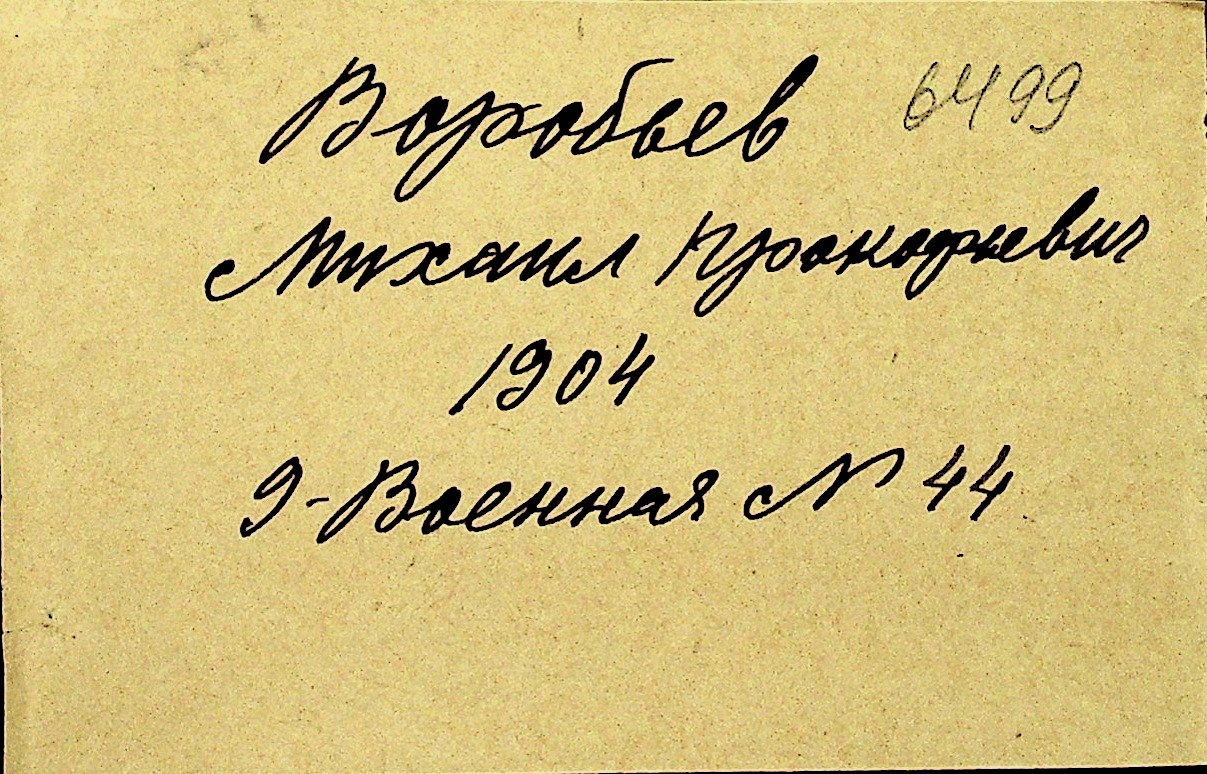 Воробьев 6499
Михаил Прокофьевич
1904
9-Военная N 44